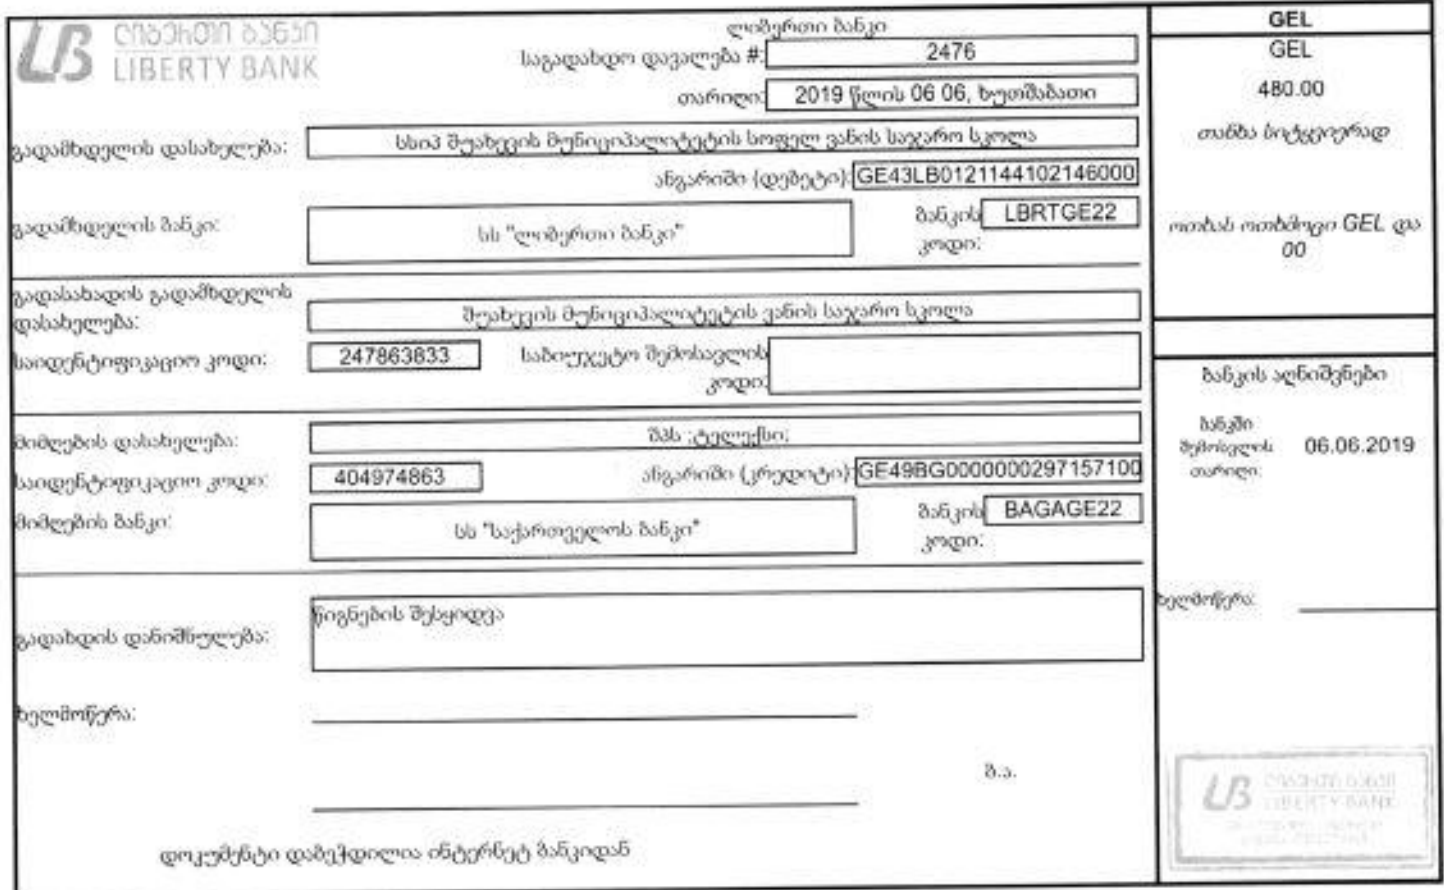 ლიბერთი ბანკი
LIBERTY BANK
ლიბერთი ბანკი
საგადახდო დავალება #: 2476
თარიღი: 2019 წლის 06 06, ხუთშაბათი
გადამხდელის დასახელება: სსიპ შუახევის მუნიციპალიტეტის სოფელ ვანის საჯარო სკოლა
ანგარიში (დებეტი): GE43LB0121144102146000
გადამხდელის ბანკი: სს "ლიბერთი ბანკი" ბანკის კოდი: LBRTGE22
გადასახადის გადამხდელის დასახელება: შუახევის მუნიციპალიტეტის ვანის საჯარო სკოლა
საიდენტიფიკაციო კოდი: 247863833 საბიუჯეტო შემოსავლის კოდი:
მიმღების დასახელება: შპს ;ტელექსი;
საიდენტიფიკაციო კოდი: 404974863 ანგარიში (კრედიტი): GE49BG0000000297157100
მიმღების ბანკი: სს "საქართველოს ბანკი" ბანკის კოდი: BAGAGE22
გადახდის დანიშნულება: წიგნების შესყიდვა
ხელმოწერა:
ბ.ა.
დოკუმენტი დაბეჭდილია ინტერნეტ ბანკიდან
GEL
GEL
480.00
თანხა სიტყვიერად
ოთხას ოთხმოცი GEL და
00
ბანკის აღნიშვნები
ბანკში
შემოსვლის 06.06.2019
თარიღი:
ხელმოწერა:
ლიბერთი ბანკი
LIBERTY BANK